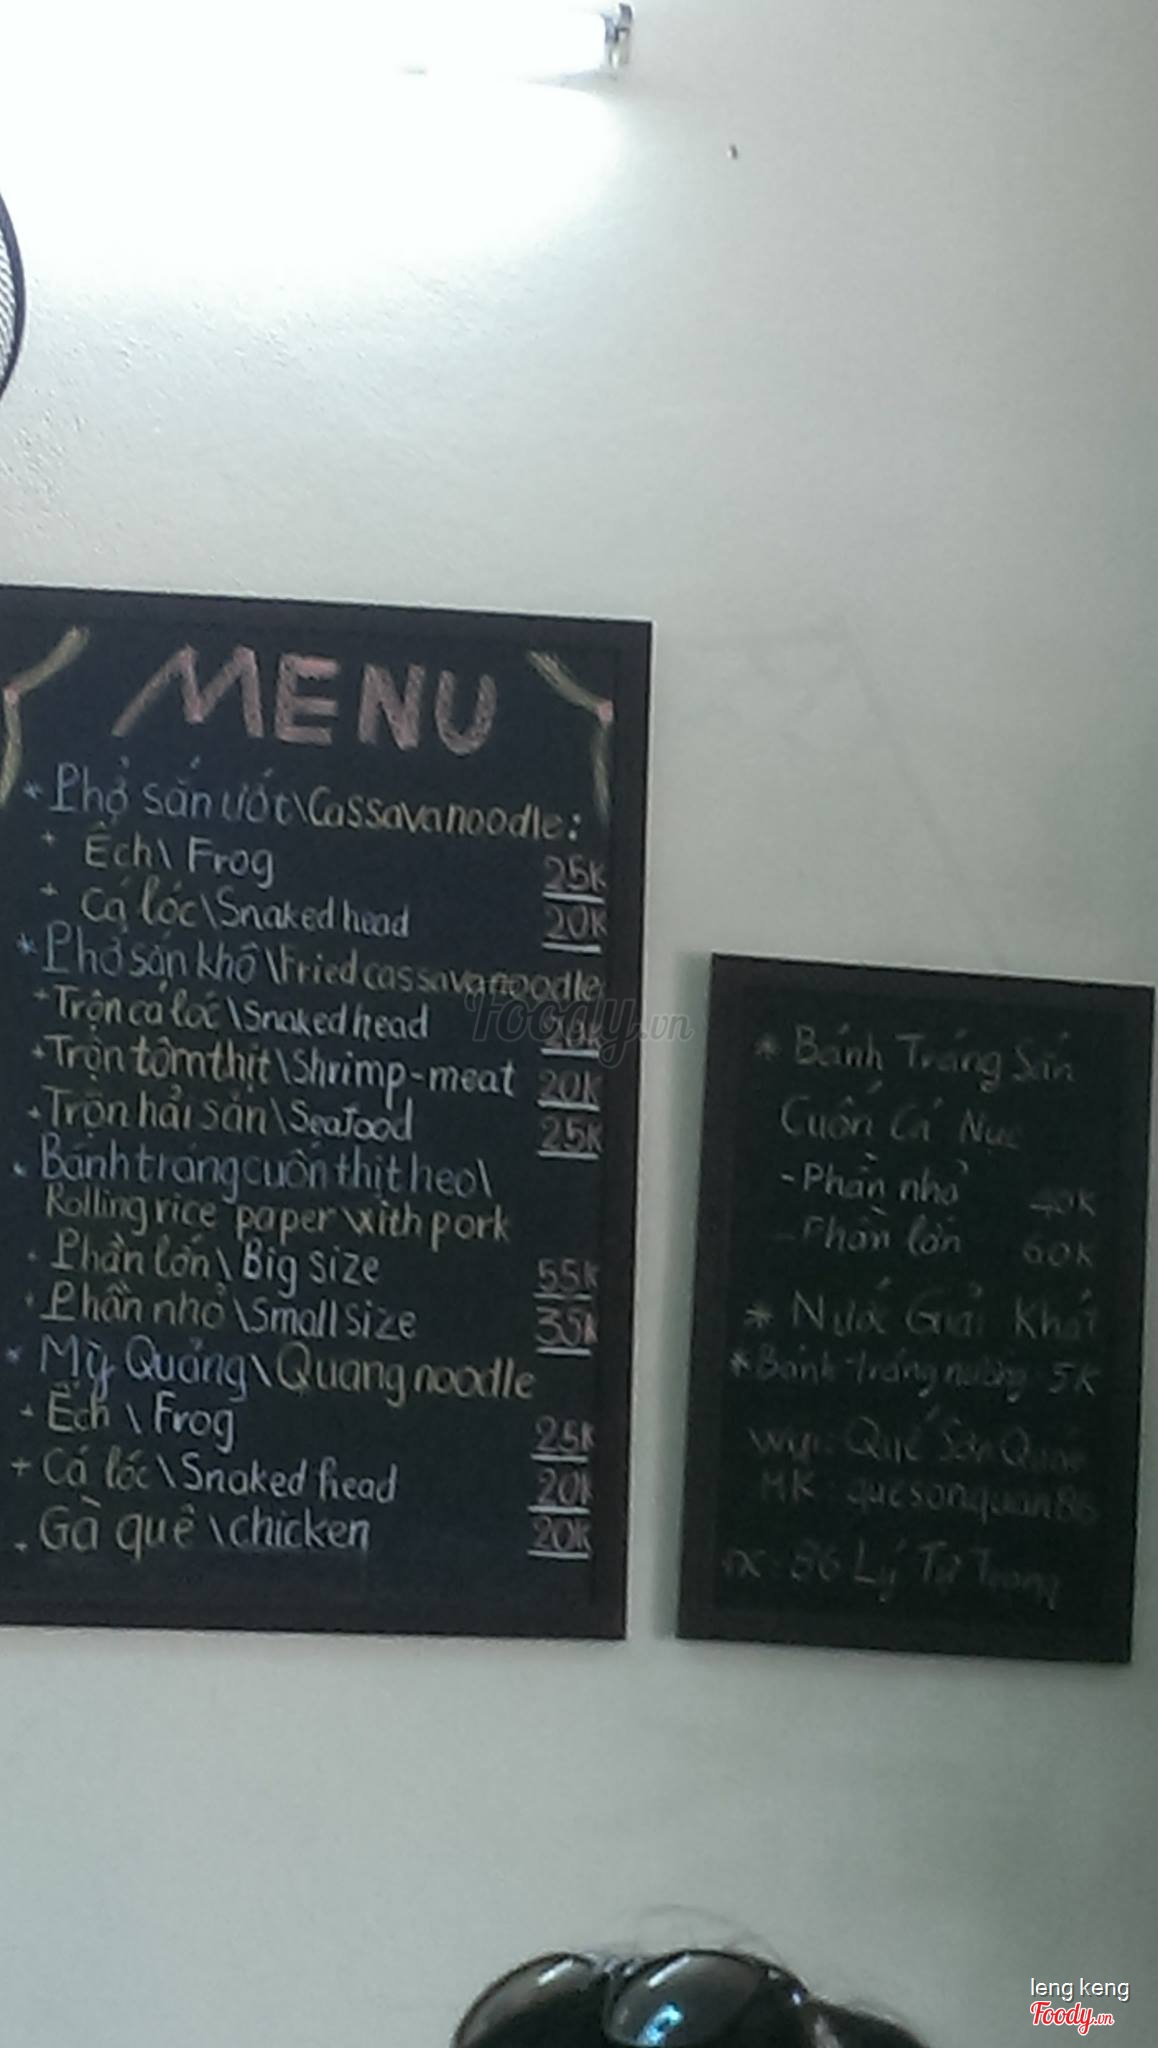 MENU
* Phở sắn ướt\Cassava noodle:
+ Ếch\ Frog 25K
+ Cá lóc\Snaked head 20K
* Phở sắn khô\Fried cassava noodle
+ Trộn cá lóc\Snaked head 20K
+ Trộn tôm thịt\Shrimp-meat 20K
+ Trộn hải sản\Seafood 25K
* Bánh tráng cuốn thịt heo\
Rolling rice paper with pork
+ Phần lớn\Big size 55K
+ Phần nhỏ\Small size 35K
* Mỳ Quảng\Quang noodle
+ Ếch \ Frog 25K
+ Cá lóc\Snaked head 20K
+ Gà quê \chicken 20K
* Bánh Tráng Sắn
Cuốn Cá Nục
- Phần nhỏ 40K
- Phần lớn 60K
* Nước Giải Khát
* Bánh tráng nướng: 5K
Wifi: Quế Sơn Quán
MK: quesonquan86
86 Lý Tự Trọng
Foody.vn
leng keng
Foody.vn